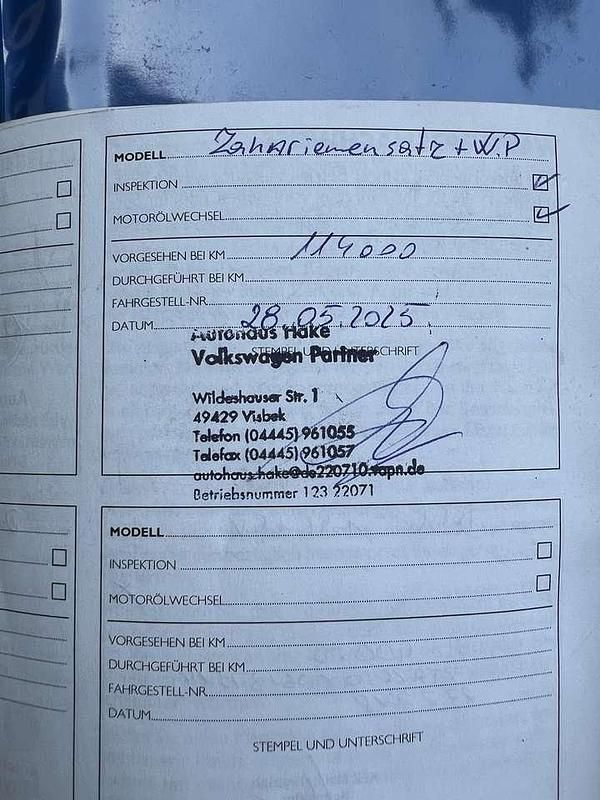 MODELL Zahnriemensatz + W.P
INSPEKTION
MOTORÖLWECHSEL
VORGESEHEN BEI KM 114000
DURCHGEFÜHRT BEI KM
FAHRGESTELL-NR.
DATUM 28.05.2025
Autohaus Hake
STEMPEL UND UNTERSCHRIFT
Volkswagen Partner
Wildeshauser Str. 1
49429 Visbek
Telefon (04445) 961055
Telefax (04445) 961057
autohaus.hake@de220710.vapn.de
Betriebsnummer 123 22071
MODELL
INSPEKTION
MOTORÖLWECHSEL
VORGESEHEN BEI KM
DURCHGEFÜHRT BEI KM
FAHRGESTELL-NR.
DATUM
STEMPEL UND UNTERSCHRIFT